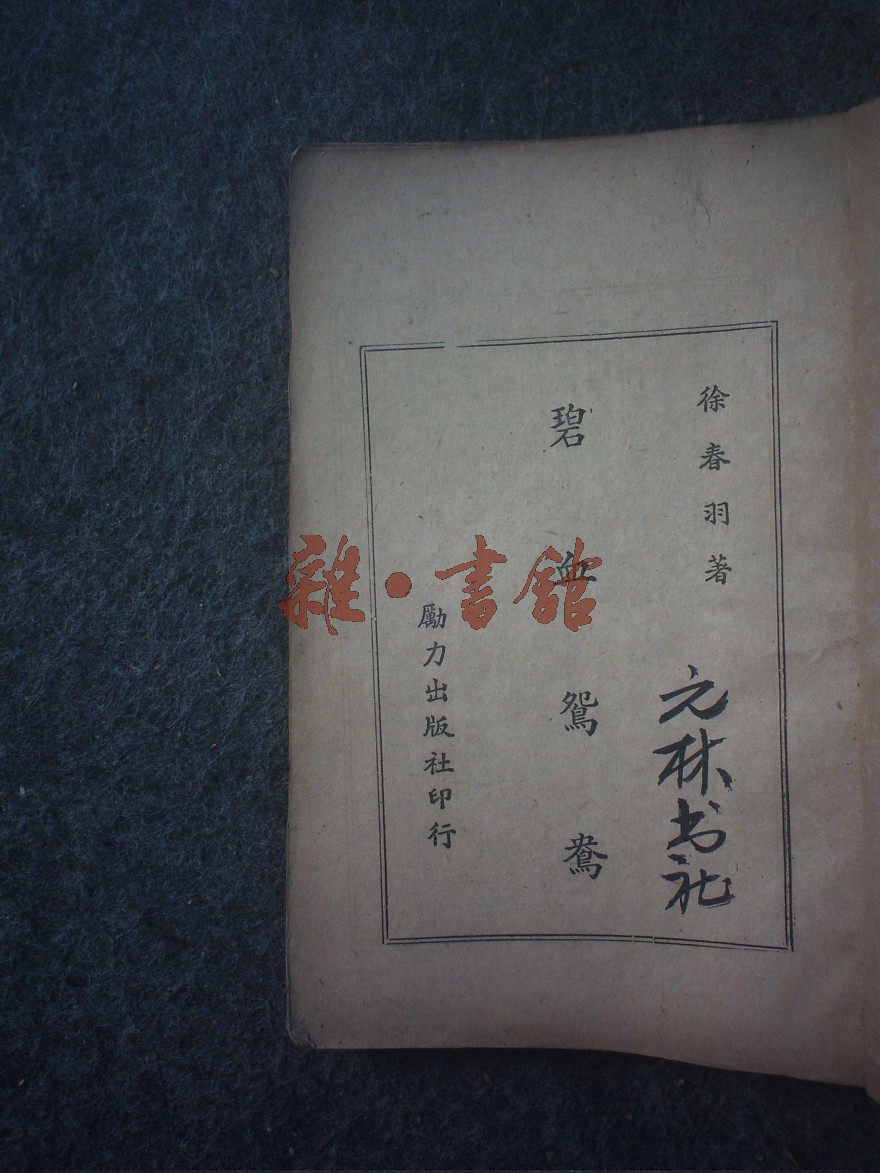 徐春羽著
元林书社
碧血鴛鴦
勵力出版社印行
雜·書館